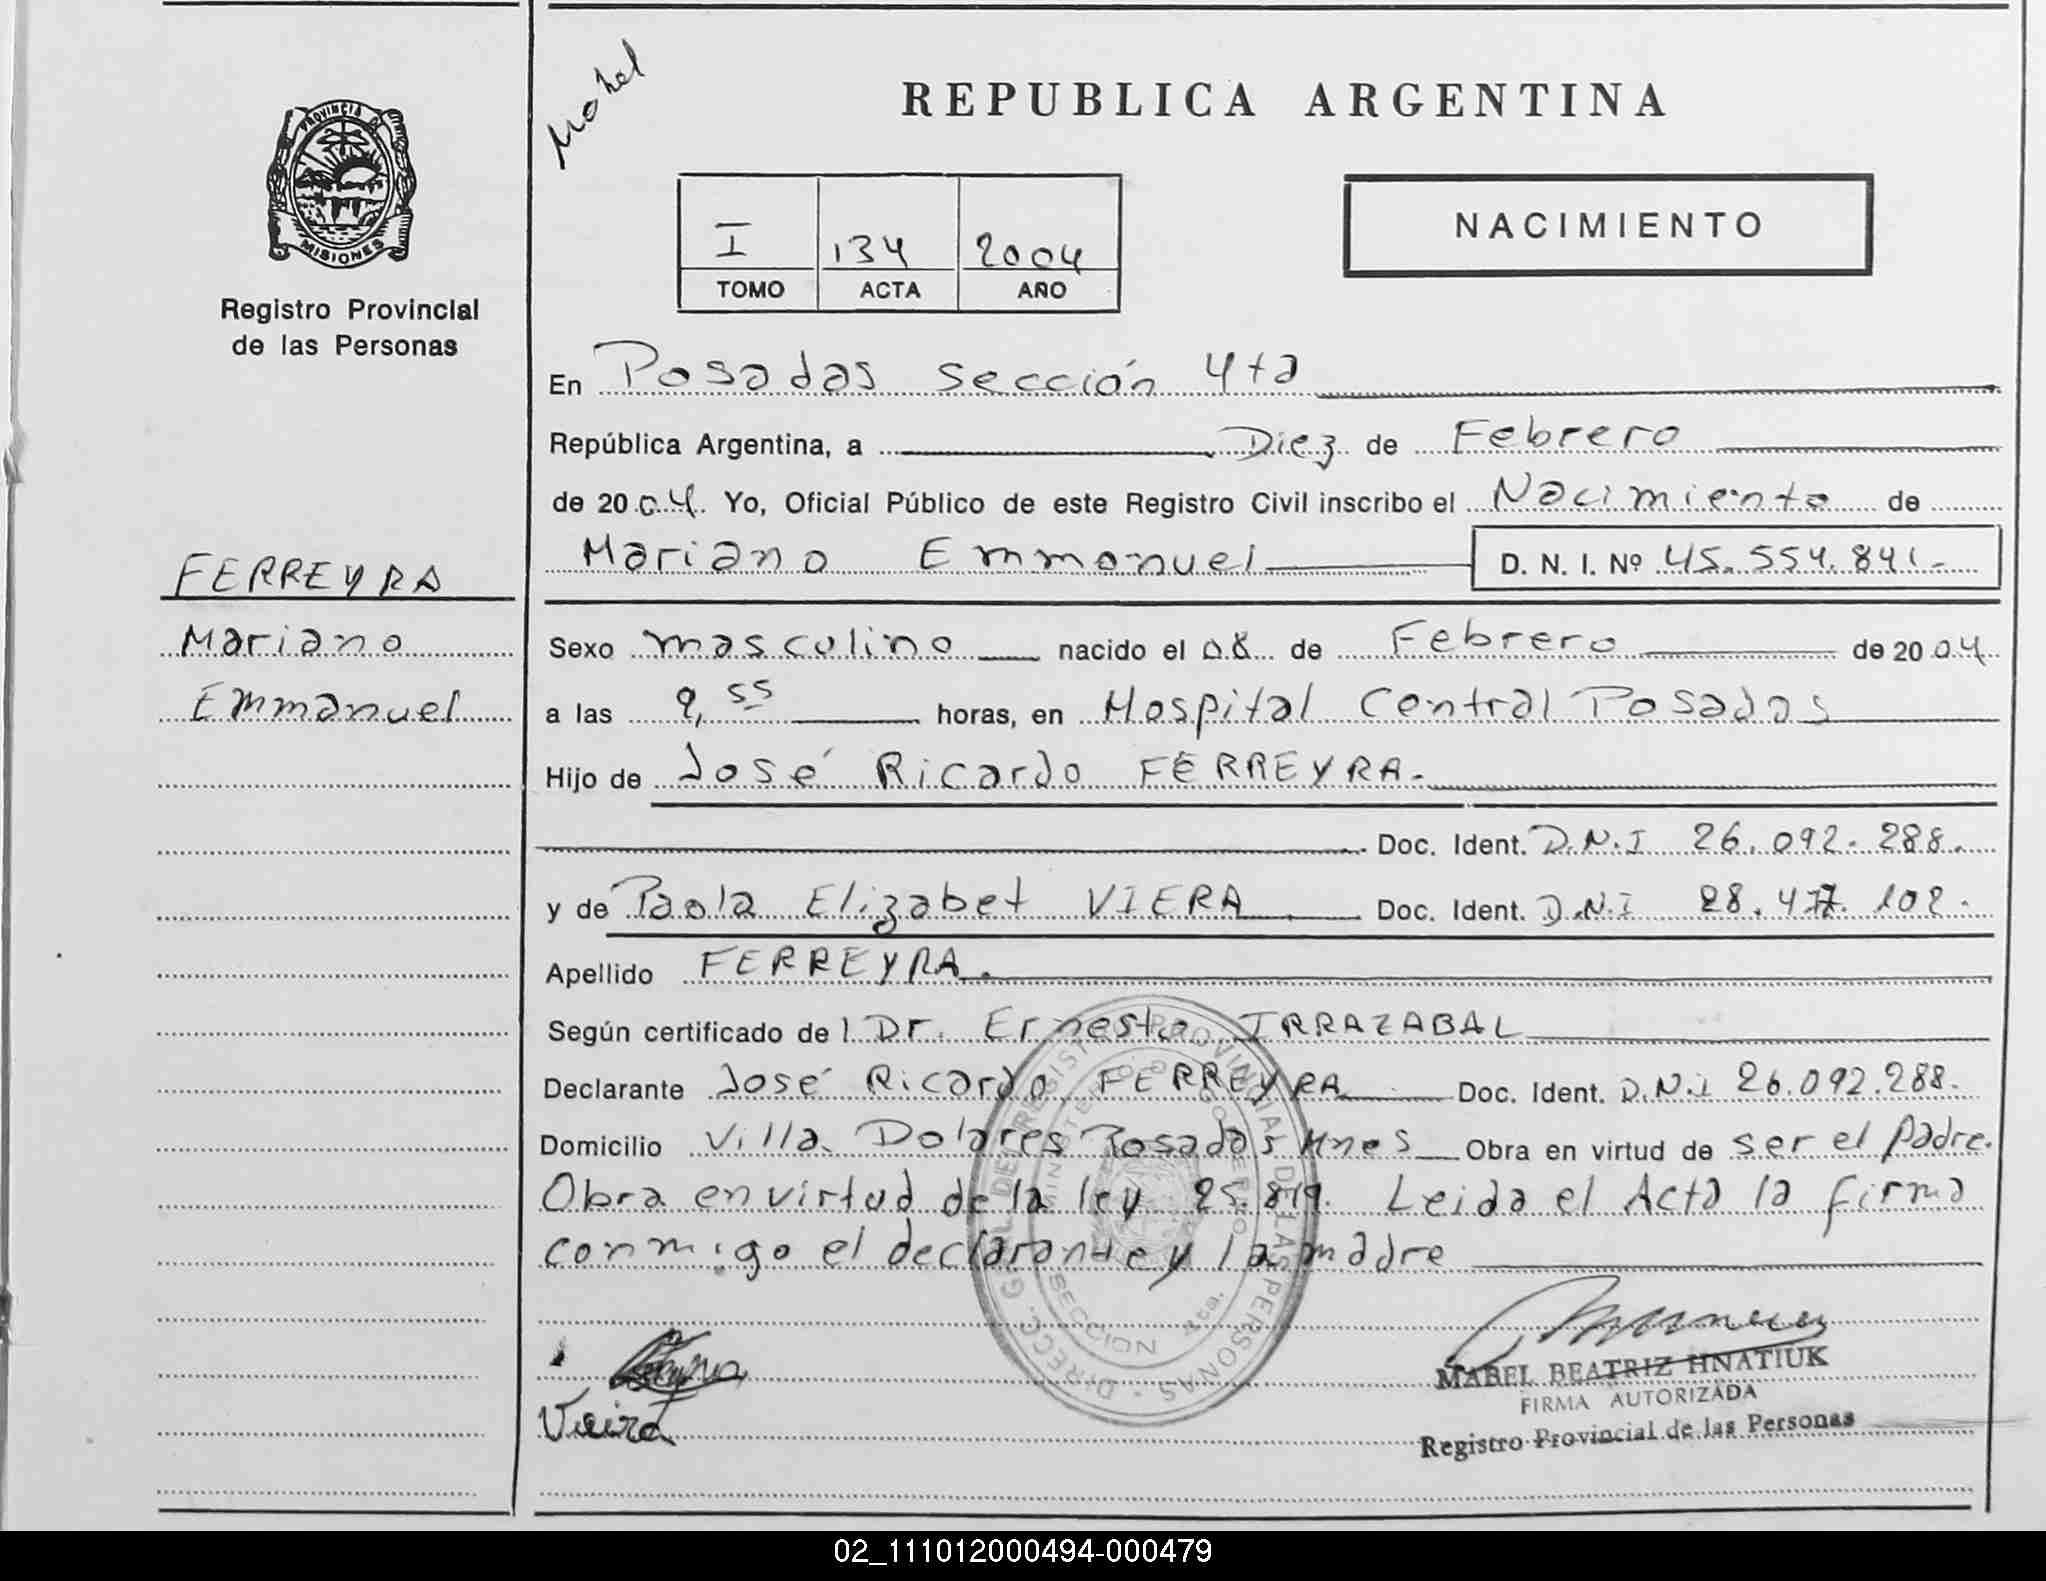 Mabel
REPUBLICA ARGENTINA
PROVINCIA DE
MISIONES
Registro Provincial
de las Personas
I 134 2004
TOMO ACTA AÑO
NACIMIENTO
En Posadas sección 4ta
República Argentina, a Diez de Febrero
de 2004. Yo, Oficial Público de este Registro Civil inscribo el Nacimiento de
FERREYRA
Mariano
Emmanuel
Mariano Emmanuel D. N. I. Nº 45.554.841.-
Sexo masculino nacido el 08 de Febrero de 2004
a las 9,55 horas, en Hospital Central Posadas
Hijo de José Ricardo FERREYRA.
Doc. Ident. D.N.I 26.092.288.
y de Paola Elizabet VIERA Doc. Ident. D.N.I 28.477.102.
Apellido FERREYRA.
Según certificado del Dr. Ernesto IRRAZABAL
Declarante José Ricardo FERREYRA Doc. Ident. D.N.I 26.092.288.
Domicilio Villa Dolores Posadas Mnes Obra en virtud de ser el padre.
Obra en virtud de la ley 25.819. Leida el Acta la firma
conmigo el declarante y la madre
DIRECC. GRAL. DEL REGISTRO PROVINCIAL DE LAS PERSONAS
MINISTERIO DE GOBIERNO
SECCION 4ta.
MABEL BEATRIZ HNATIUK
FIRMA AUTORIZADA
Registro Provincial de las Personas
Vieira
02_111012000494-000479